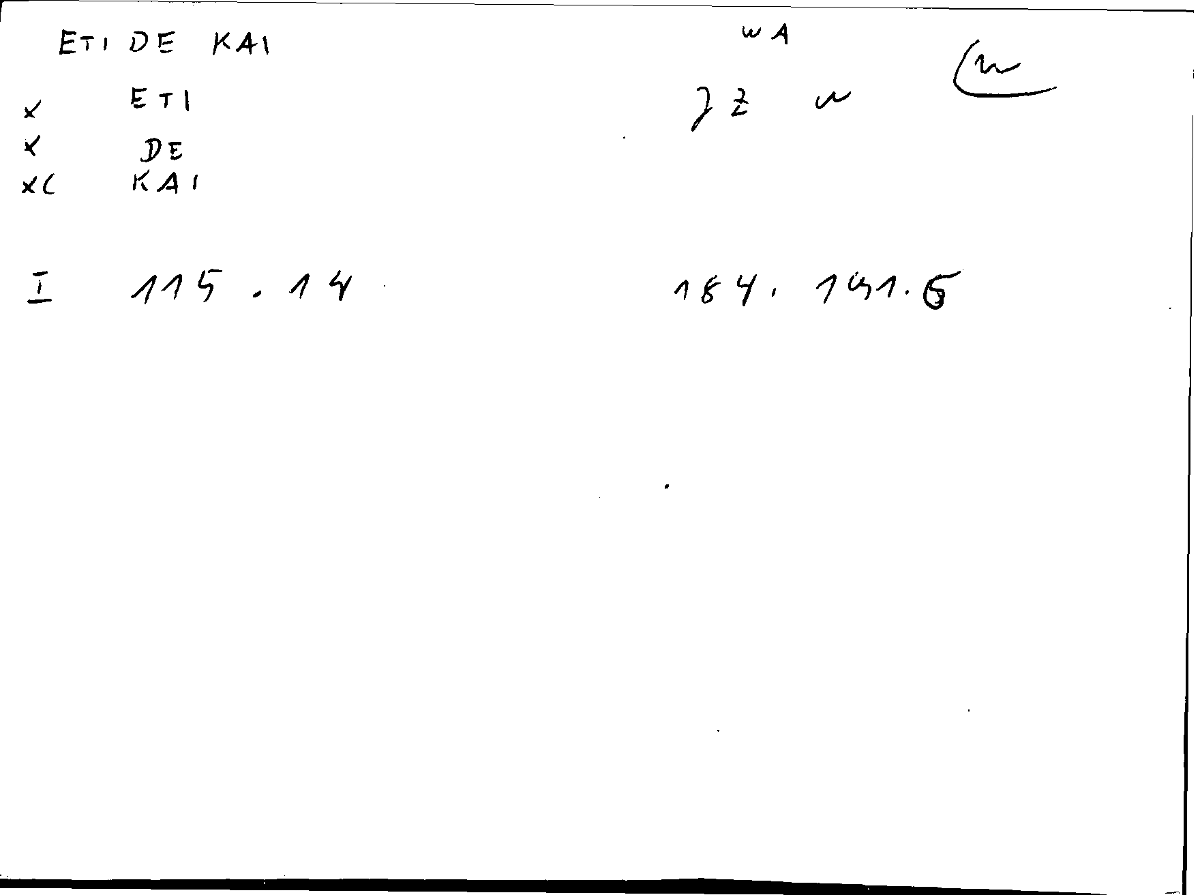 ETI DE KAI
WA
x ETI
x DE
xc KAI
I 115.14 184.191.6